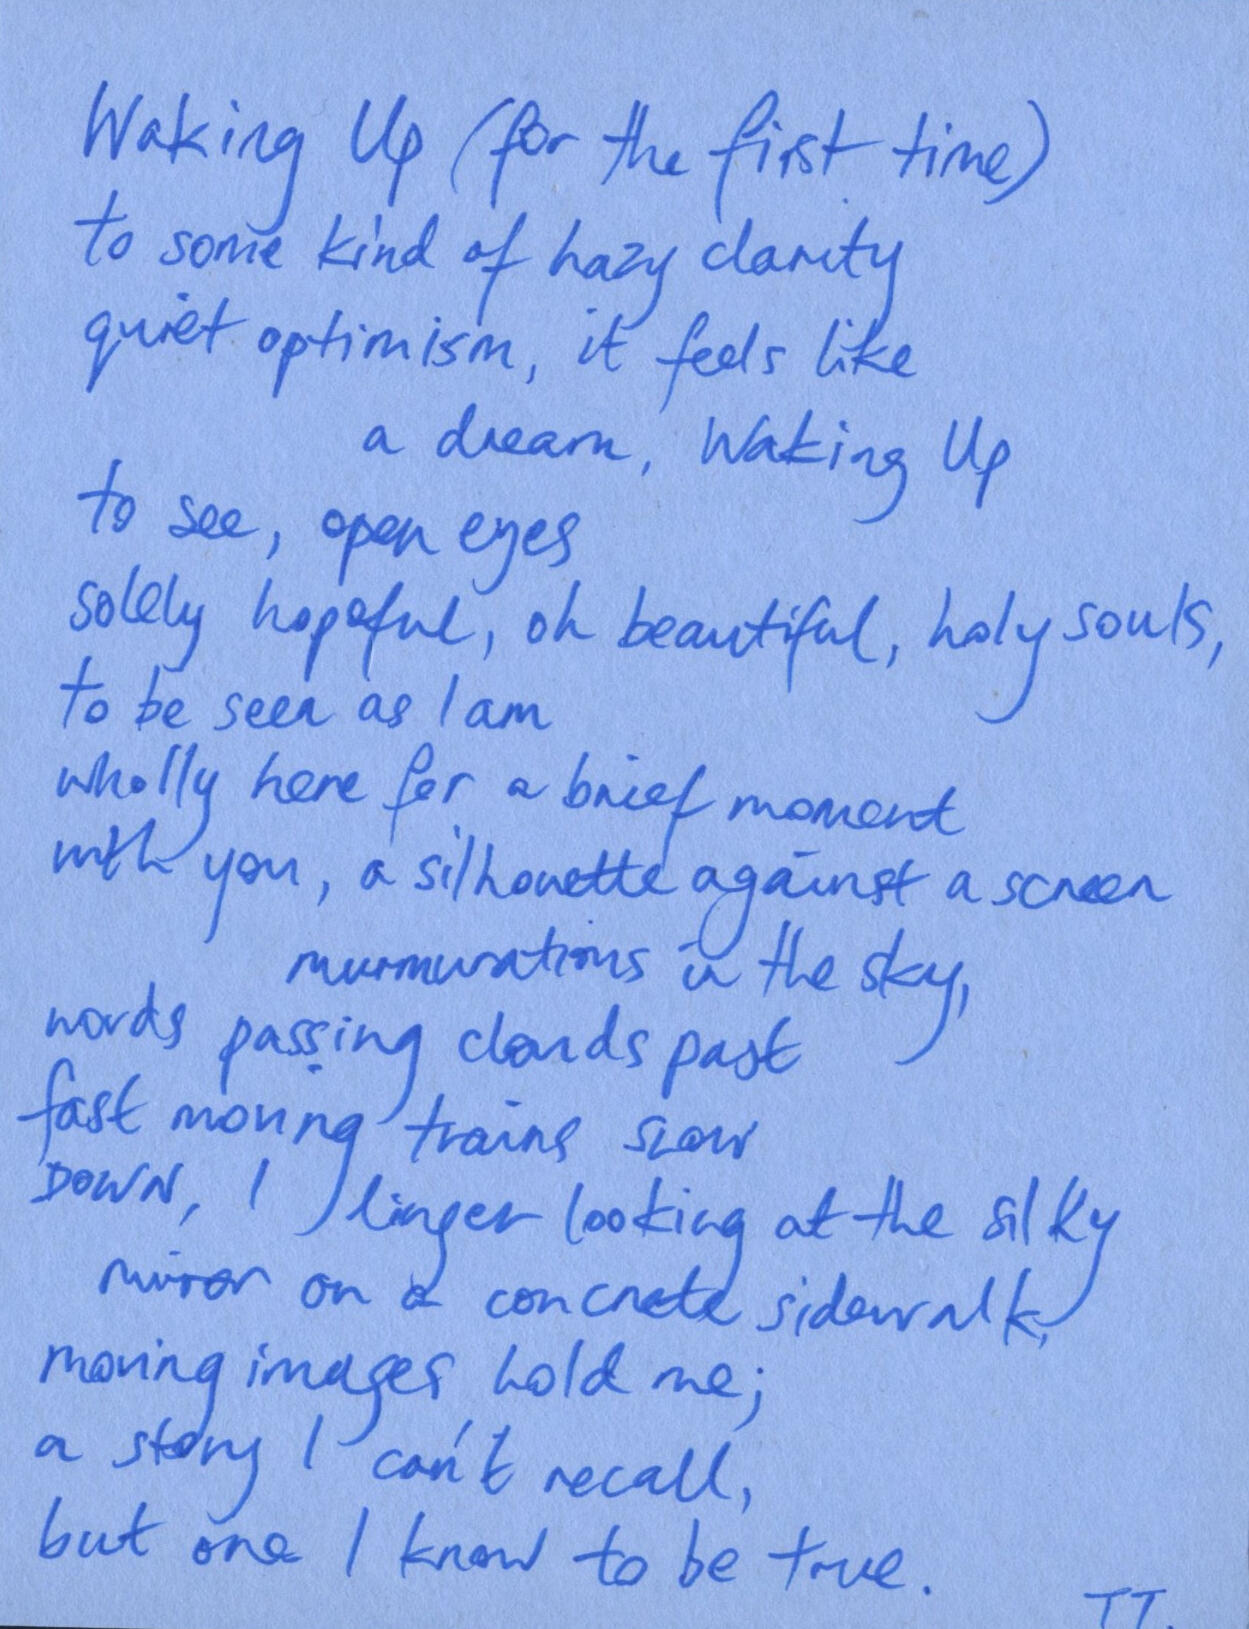 Waking Up (for the first time)
to some kind of hazy clarity
quiet optimism, it feels like
a dream, Waking Up
to see, open eyes
solely hopeful, oh beautiful, holy souls,
to be seen as I am
wholly here for a brief moment
with you, a silhouette against a screen
murmurations in the sky,
words passing clouds past
fast moving trains slow
DOWN, I linger looking at the silky
mirror on a concrete sidewalk,
moving images hold me;
a story I can't recall,
but one I know to be true.
TT.